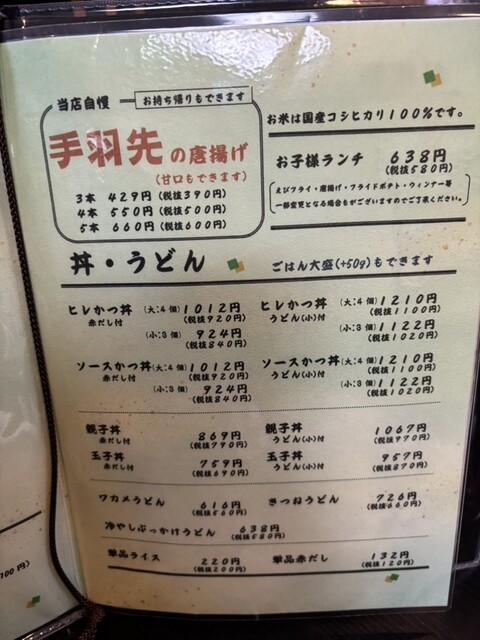 当店自慢
お持ち帰りもできます
手羽先の唐揚げ
(甘口もできます)
3本 429円(税抜390円)
4本 550円(税抜500円)
5本 660円(税抜600円)
お米は国産コシヒカリ100%です。
お子様ランチ 638円
(税抜580円)
えびフライ・唐揚げ・フライドポテト・ウィンナー等
一部変更となる場合もございますのでご了承ください。
丼・うどん
ごはん大盛(+50g)もできます
ヒレかつ丼 (大:4個) 1012円
赤だし付 (税抜920円)
(小:3個) 924円
(税抜840円)
ヒレかつ丼 (大:4個) 1210円
うどん(小)付 (税抜1100円)
(小:3個) 1122円
(税抜1020円)
ソースかつ丼 (大:4個) 1012円
赤だし付 (税抜920円)
(小:3個) 924円
(税抜840円)
ソースかつ丼 (大:4個) 1210円
うどん(小)付 (税抜1100円)
(小:3個) 1122円
(税抜1020円)
親子丼 869円
赤だし付 (税抜790円)
親子丼 1067円
うどん(小)付 (税抜970円)
玉子丼 759円
赤だし付 (税抜690円)
玉子丼 957円
うどん(小)付 (税抜870円)
ワカメうどん 616円
(税抜560円)
きつねうどん 726円
(税抜660円)
冷やしぶっかけうどん 638円
(税抜580円)
単品ライス 220円
(税抜200円)
単品赤だし 132円
(税抜120円)
100円)